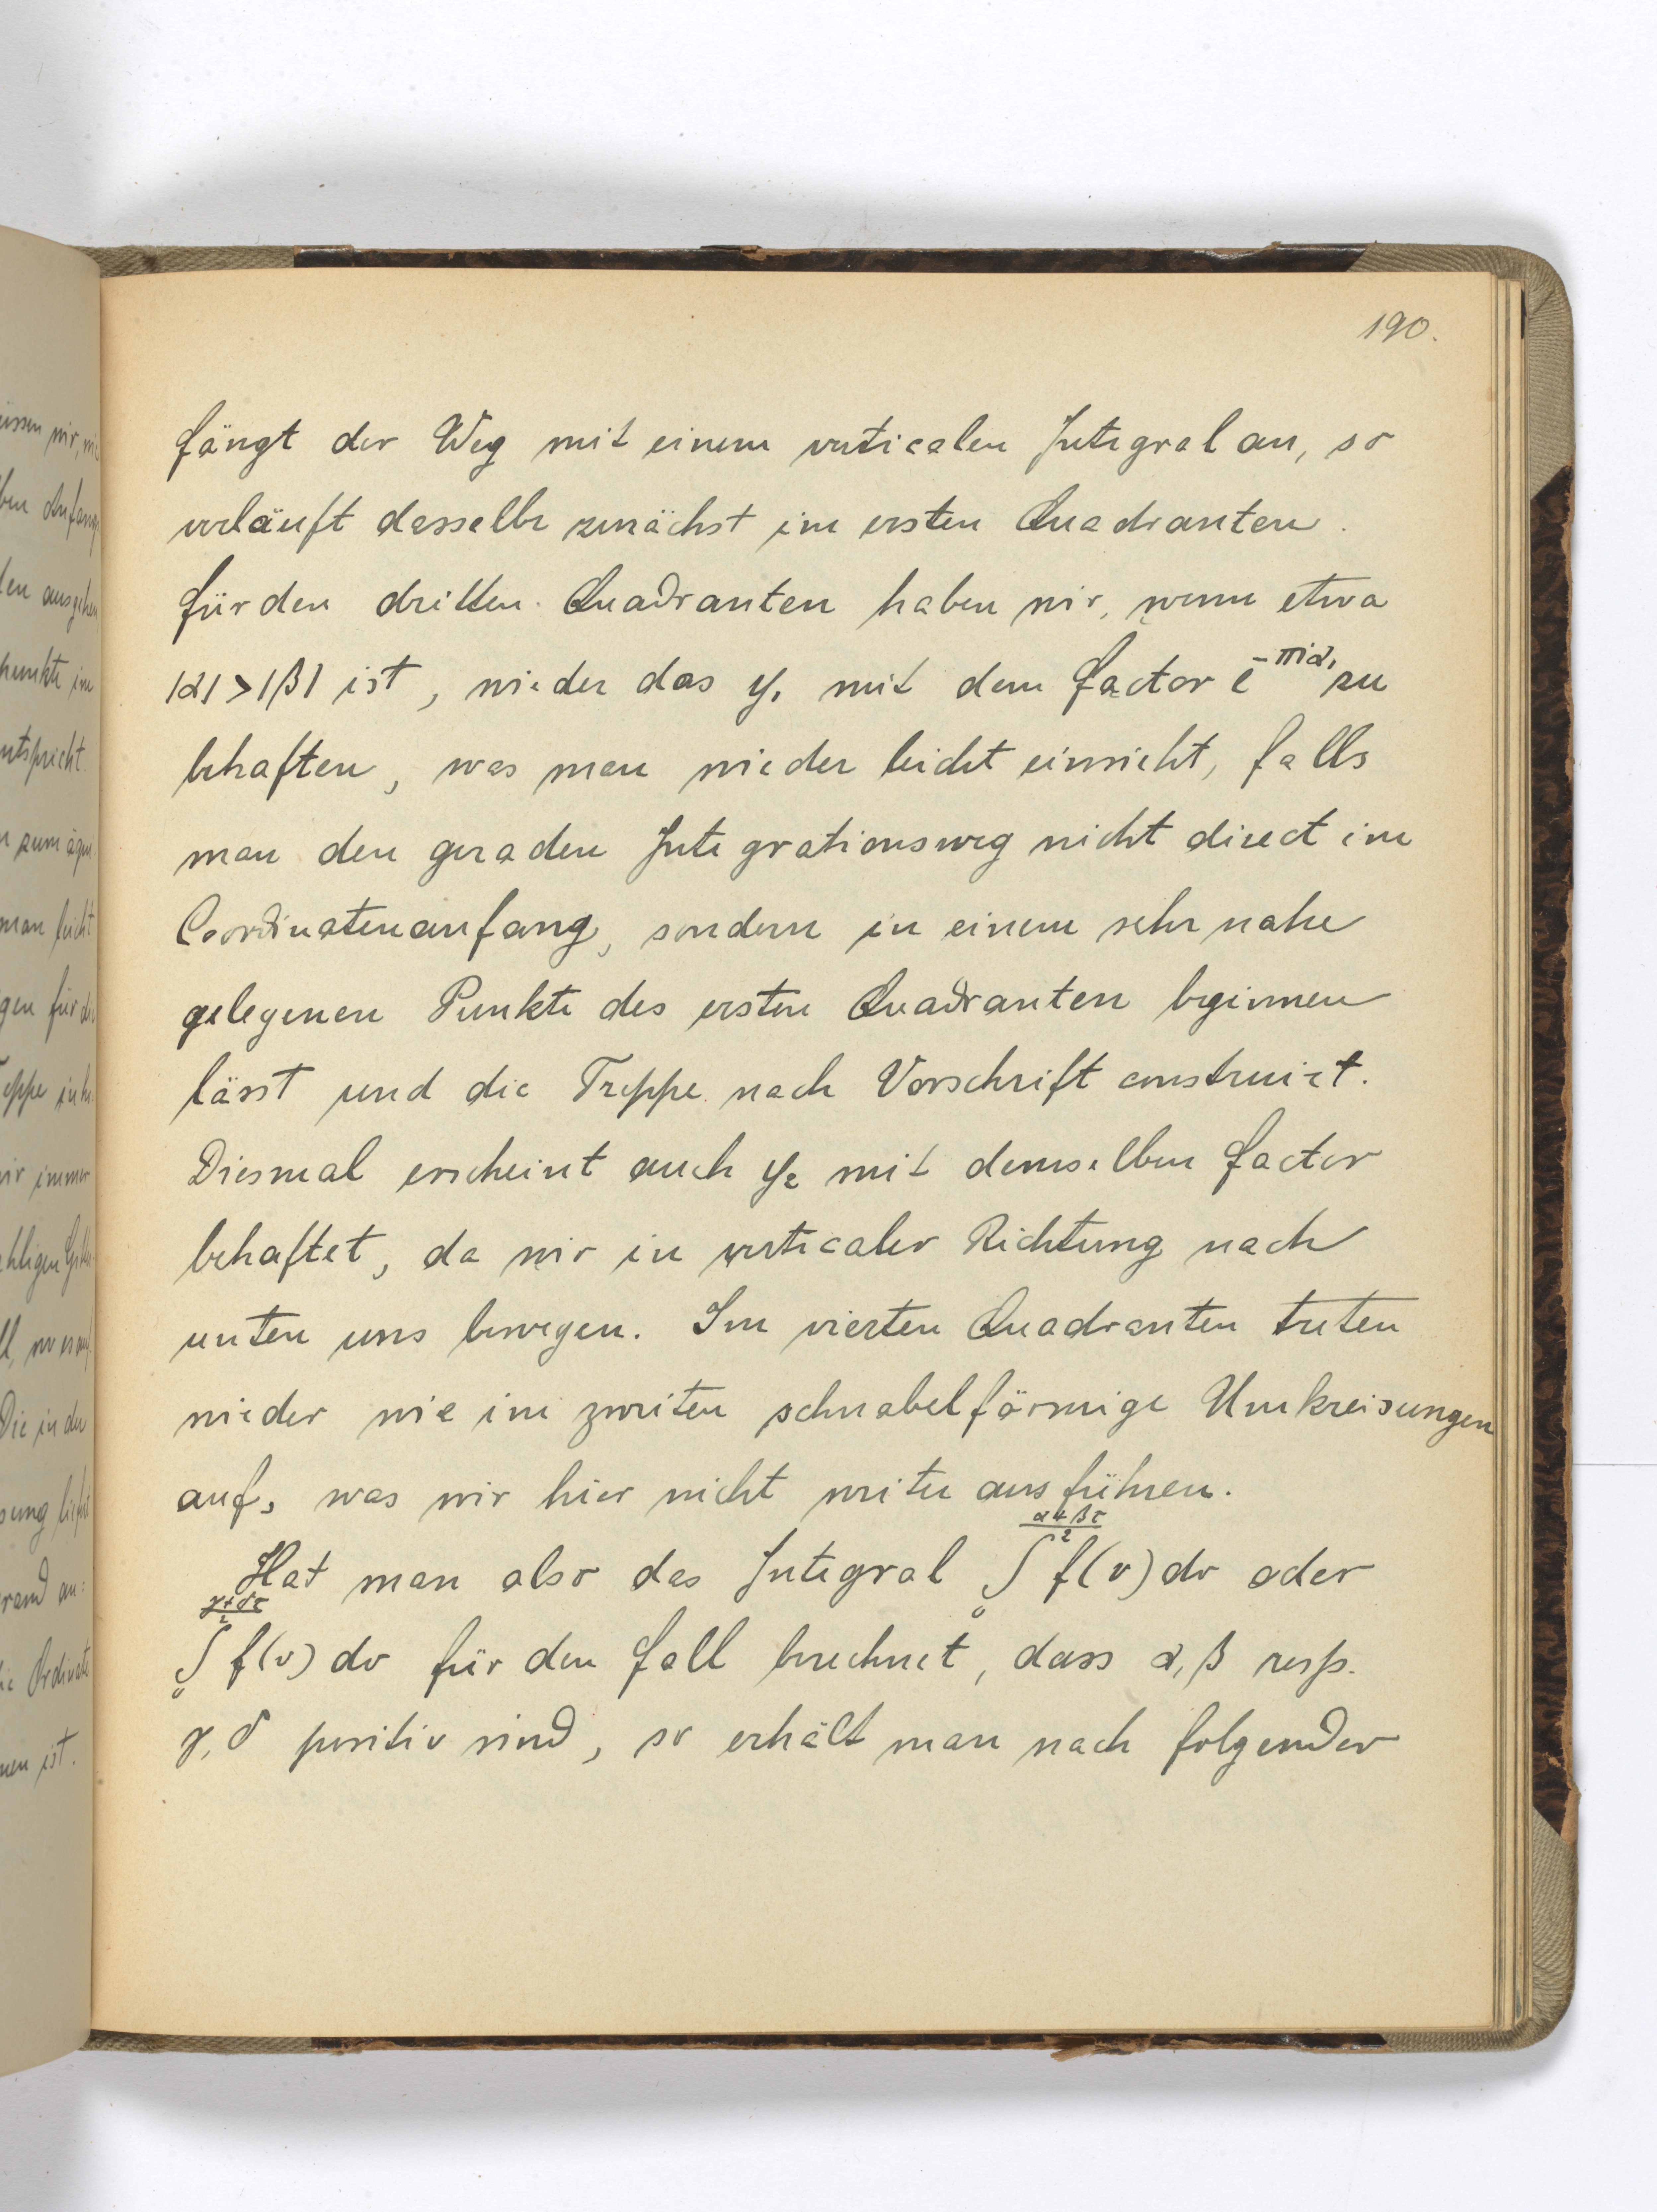 190.
fängt der Weg mit einem verticalen Integral an, so
verläuft dasselbe zunächst im ersten Quadranten.
Für den dritten Quadranten haben wir, wenn etwa
|α|>|β| ist, wieder das y₁ mit dem Factor e^{-πiα₁} zu
behaften, was man wieder leicht einsieht, falls
man den geraden Integrationsweg nicht direct im
Coordinatenanfang, sondern in einem sehr nahe
gelegenen Punkte des ersten Quadranten beginnen
lässt und die Treppe nach Vorschrift construirt.
Diesmal erscheint auch y₂ mit demselben Factor
behaftet, da wir in verticaler Richtung nach
unten uns bewegen. Im vierten Quadranten treten
wieder wie im zweiten schnabelförmige Umkreisungen
auf, was wir hier nicht weiter ausführen.
Hat man also das Integral ∫₀^{(α+βτ)/2} f(v)dv oder
∫₀^{(γ+δτ)/2} f(v)dv für den Fall berechnet, dass α,β resp.
γ,δ positiv sind, so erhält man nach folgender